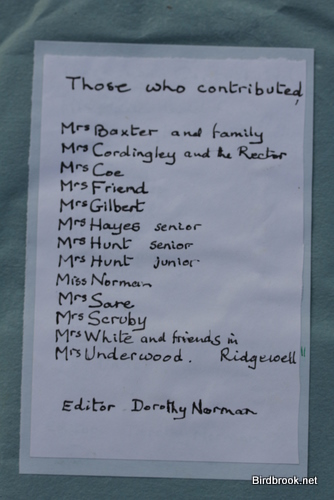 Those who contributed,
Mrs Baxter and family
Mrs Cordingley and the Rector
Mrs Coe
Mrs Friend
Mrs Gilbert
Mrs Hayes senior
Mrs Hunt senior
Mrs Hunt junior
Miss Norman
Mrs Sare
Mrs Scruby
Mrs White and friends in
Mrs Underwood. Ridgewell
Editor Dorothy Norman
Birdbrook.net